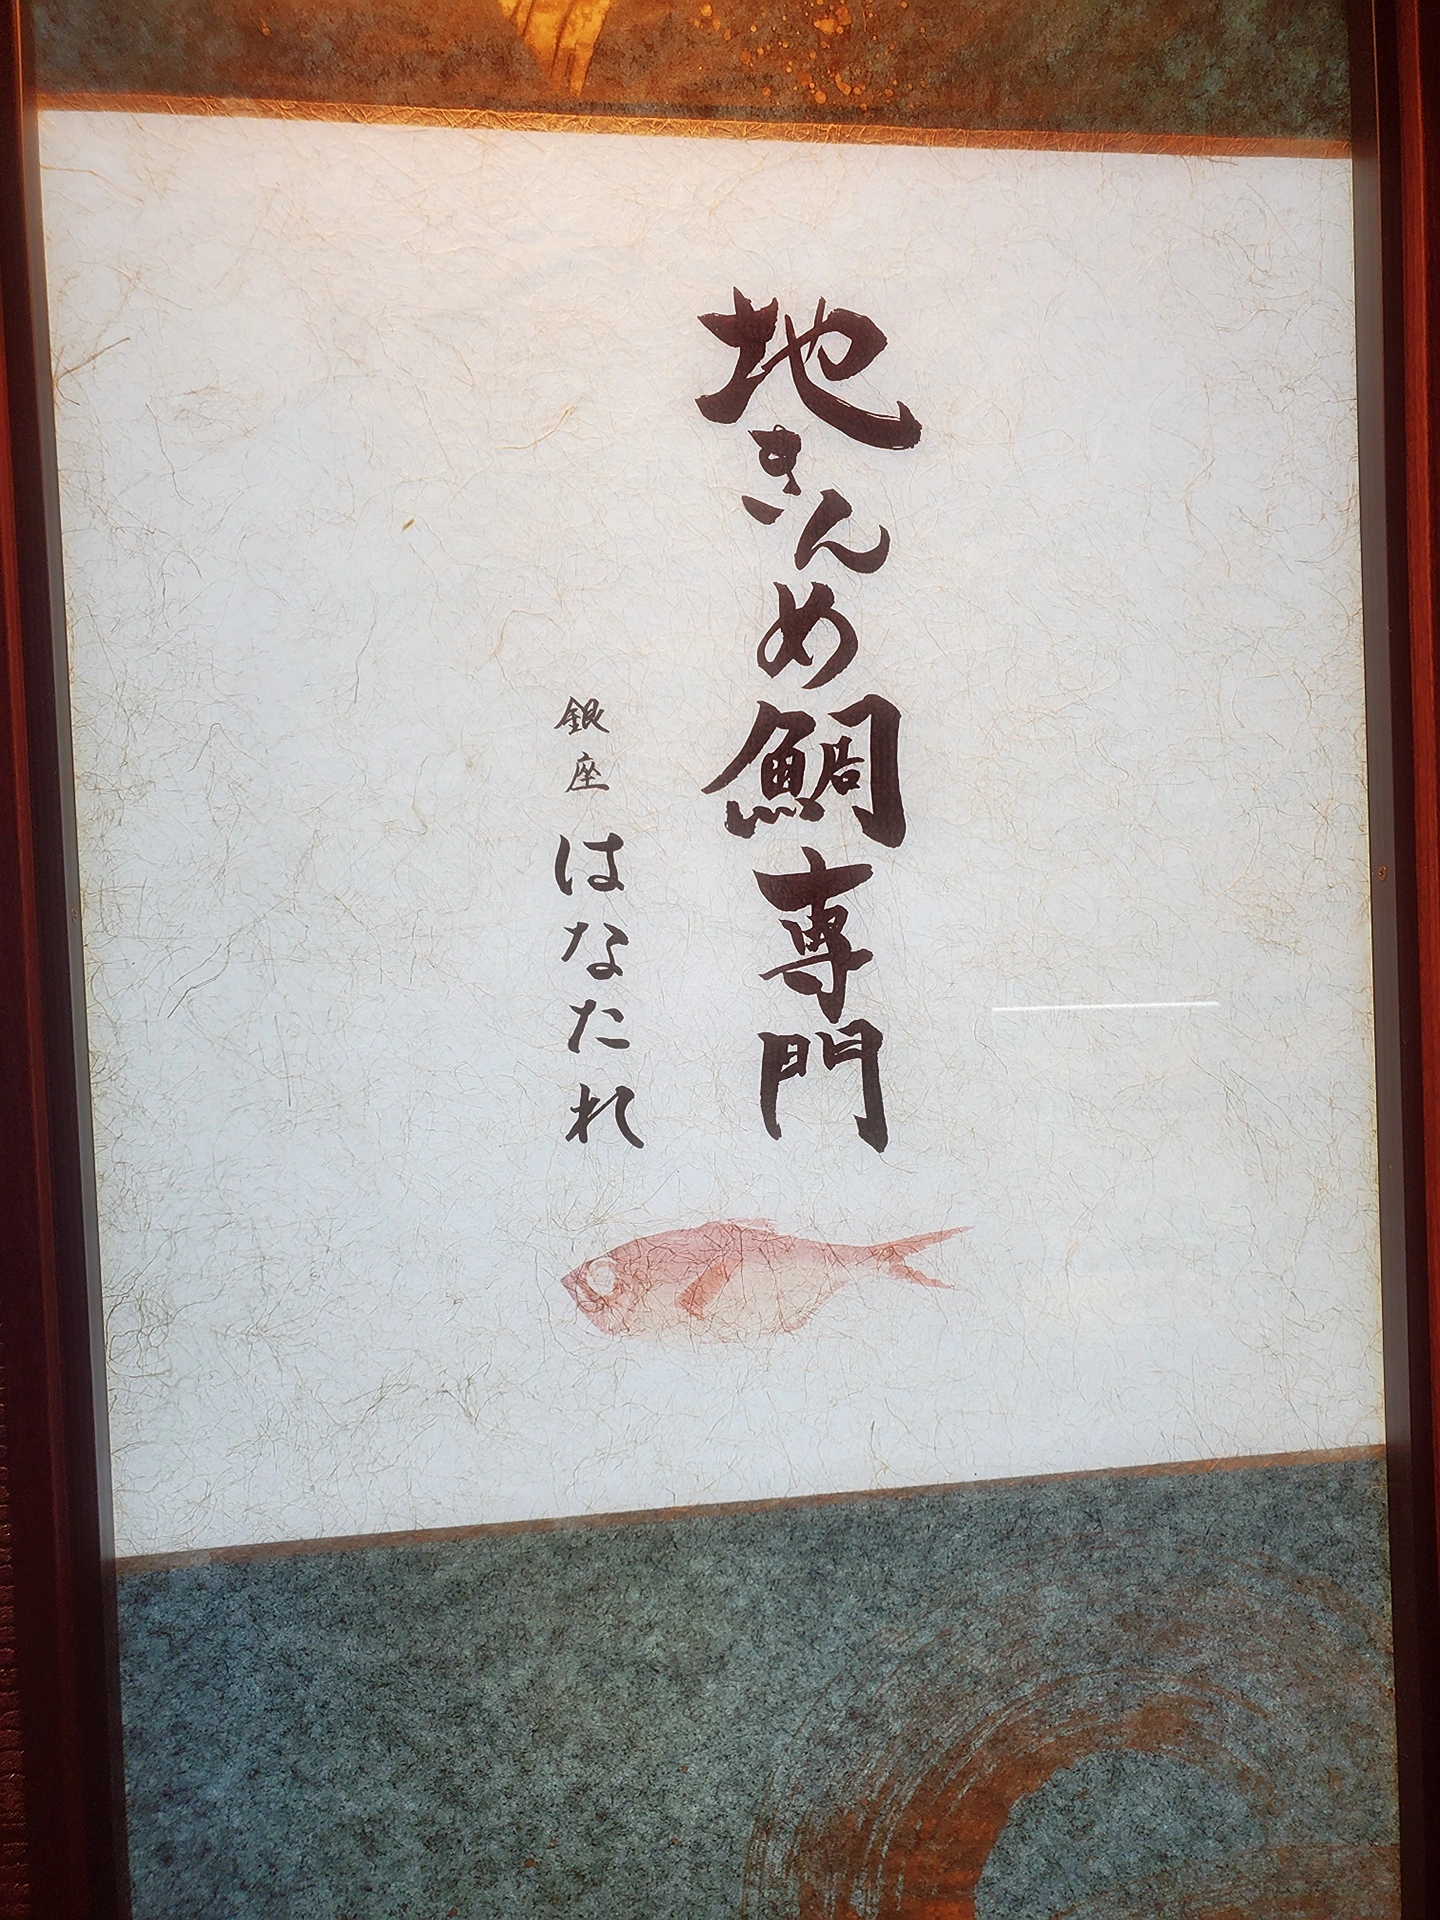 地きんめ鯛専門
銀座はなたれ